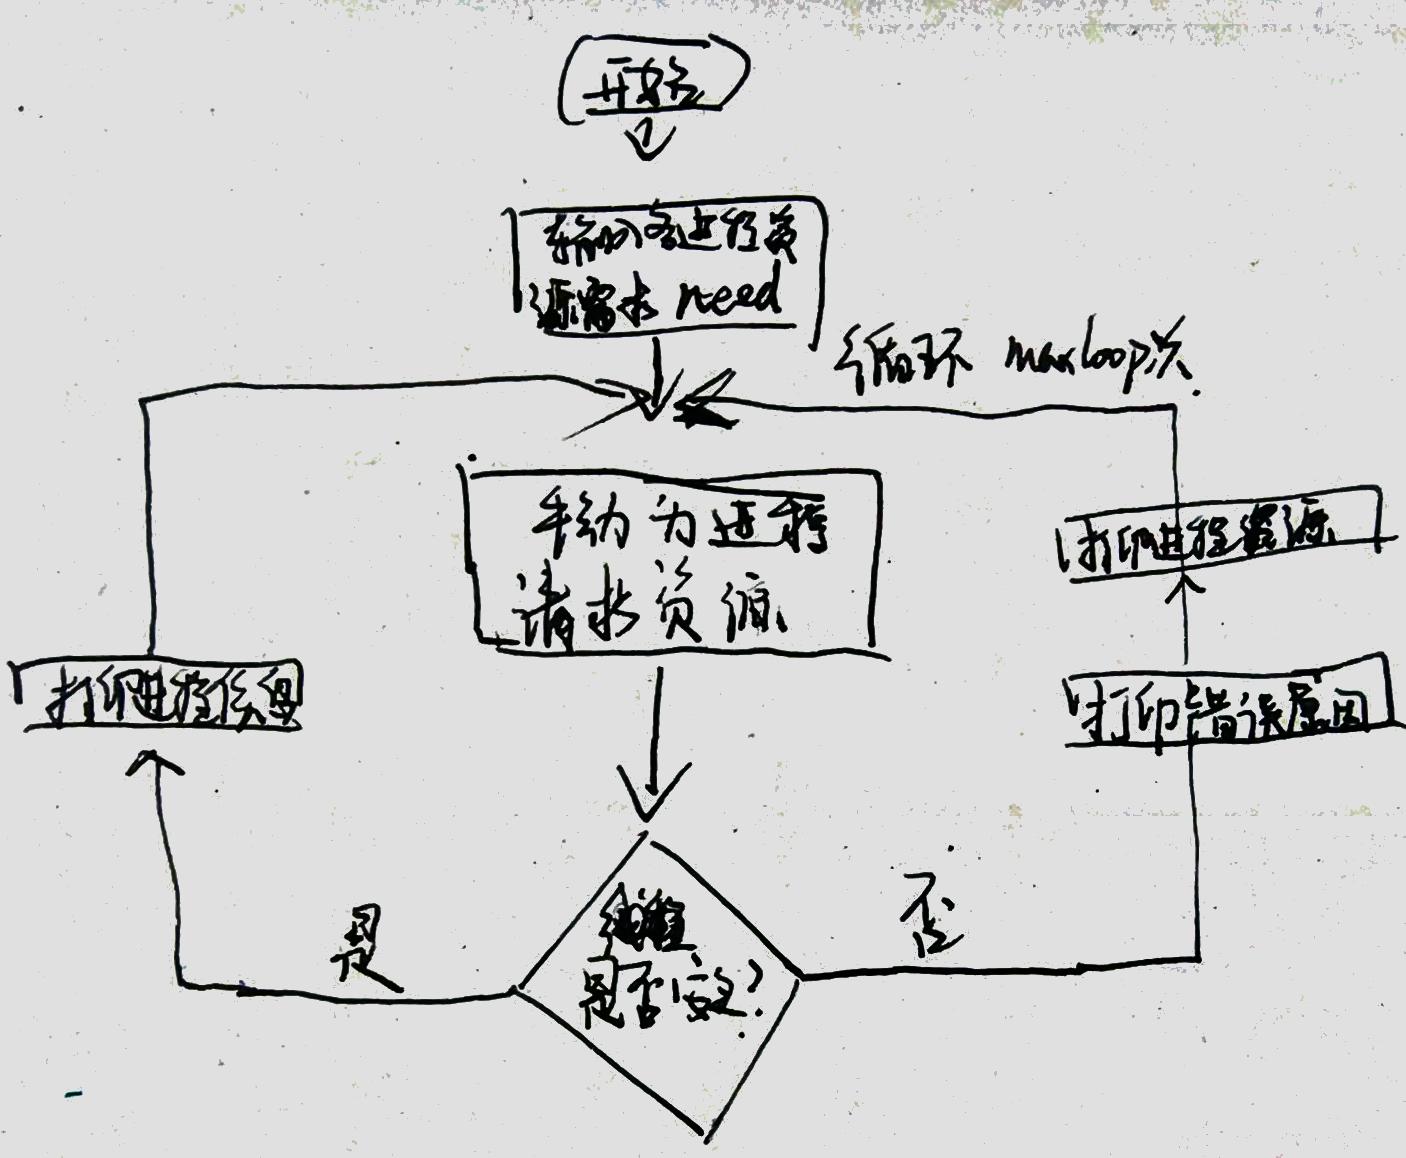 开始
输入各进程资
源需求 need
循环 maxloop次
手动为进程
请求资源
打印进程资源
打印进程
打印错误原因
是
否
是否安全?